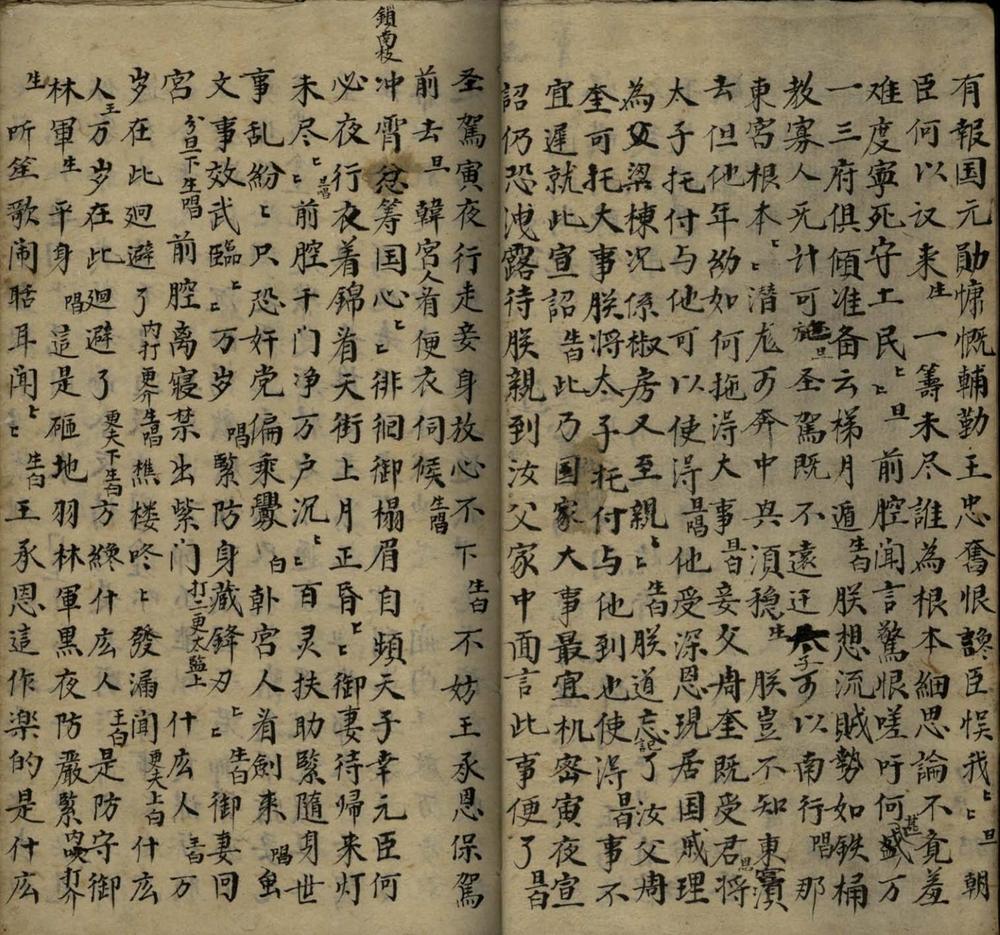 有報国元勛慷慨輔勤王忠奮恨讒臣悮我〻旦朝
臣何以议来生一籌未尽誰為根本細思論不竟羞
难度寧死守土民〻旦前腔闻言驚恨嗟吁何甚万
一三府俱傾准备云梯月遁生白朕想流贼勢如鉄桶
教寡人无计可施旦圣駕既不遠迁太子可以南行唱那
東宫根本〻潜龙可奔中興須穩生朕豈不知東
去但他年幼如何拖淂大事旦白妾父周奎既受君
太子托付与他可以使淂旦唱他受深恩現居国戚理
為梁棟况係椒房又至親〻生白朕道忘記了汝父周
奎可托大事朕将太子托付与他到也使淂旦白事不
宜遲就此宣詔生白此乃国家大事最宜机密寅夜宣
詔仍恐洩露待朕親到汝父家中面言此事便了旦白
圣駕寅夜行走妾身放心不下生白不妨王承恩保駕
前去旦韓宫人看便衣伺候生唱
鎖南枝
冲霄忿筹国心〻徘徊御榻眉自頻天子幸元臣何
必夜行夜着錦看天街上月正昏〻御妻待帰来灯
未尽〻旦唱前腔千门净万户沉〻百灵扶助緊随身世
事乱紛〻只恐奸党偏乘釁白韩宫人看劍来唱虽
文事效武臨〻万岁唱緊防身藏鋒刃〻生白御妻回
宫旦下生唱前腔离寝禁出紫门打二更太监上什庅人王白万
岁在此廻避了内打更介生唱樵楼咚〻發漏闻更夫上白什庅
人王万岁在此廻避了更夫下生白方纔什庅人王白是防守御
林軍生平身唱這是砸地羽林軍黒夜防嚴緊内吹打介
生听笙歌闹聒耳闻〻生白王承恩這作楽的是什庅